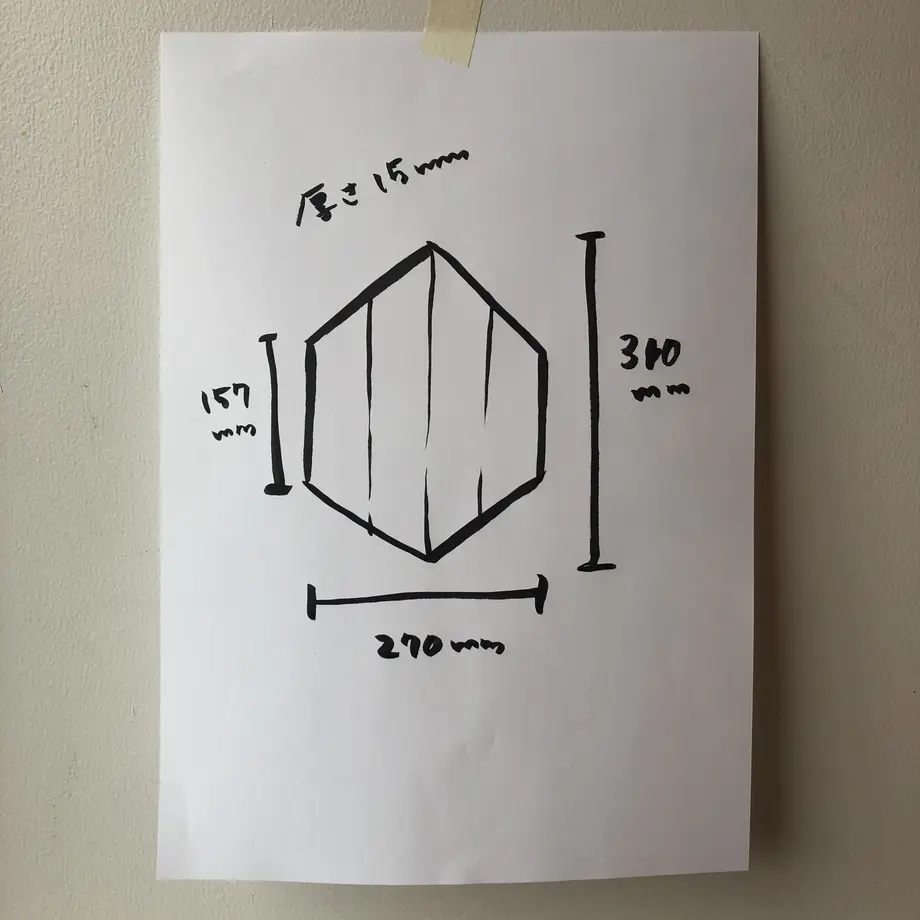 厚さ15mm
157
mm
310
mm
270mm